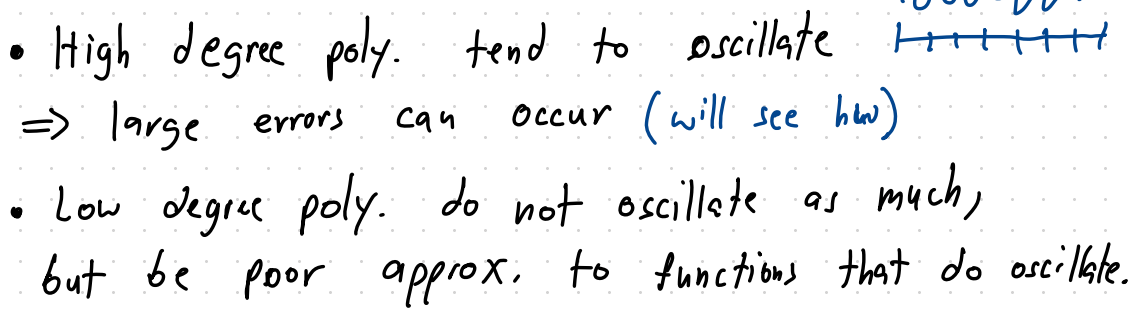 • High degree poly. tend to oscillate
⇒ large errors can occur (will see how)
• Low degree poly. do not oscillate as much,
but be poor approx. to functions that do oscillate.